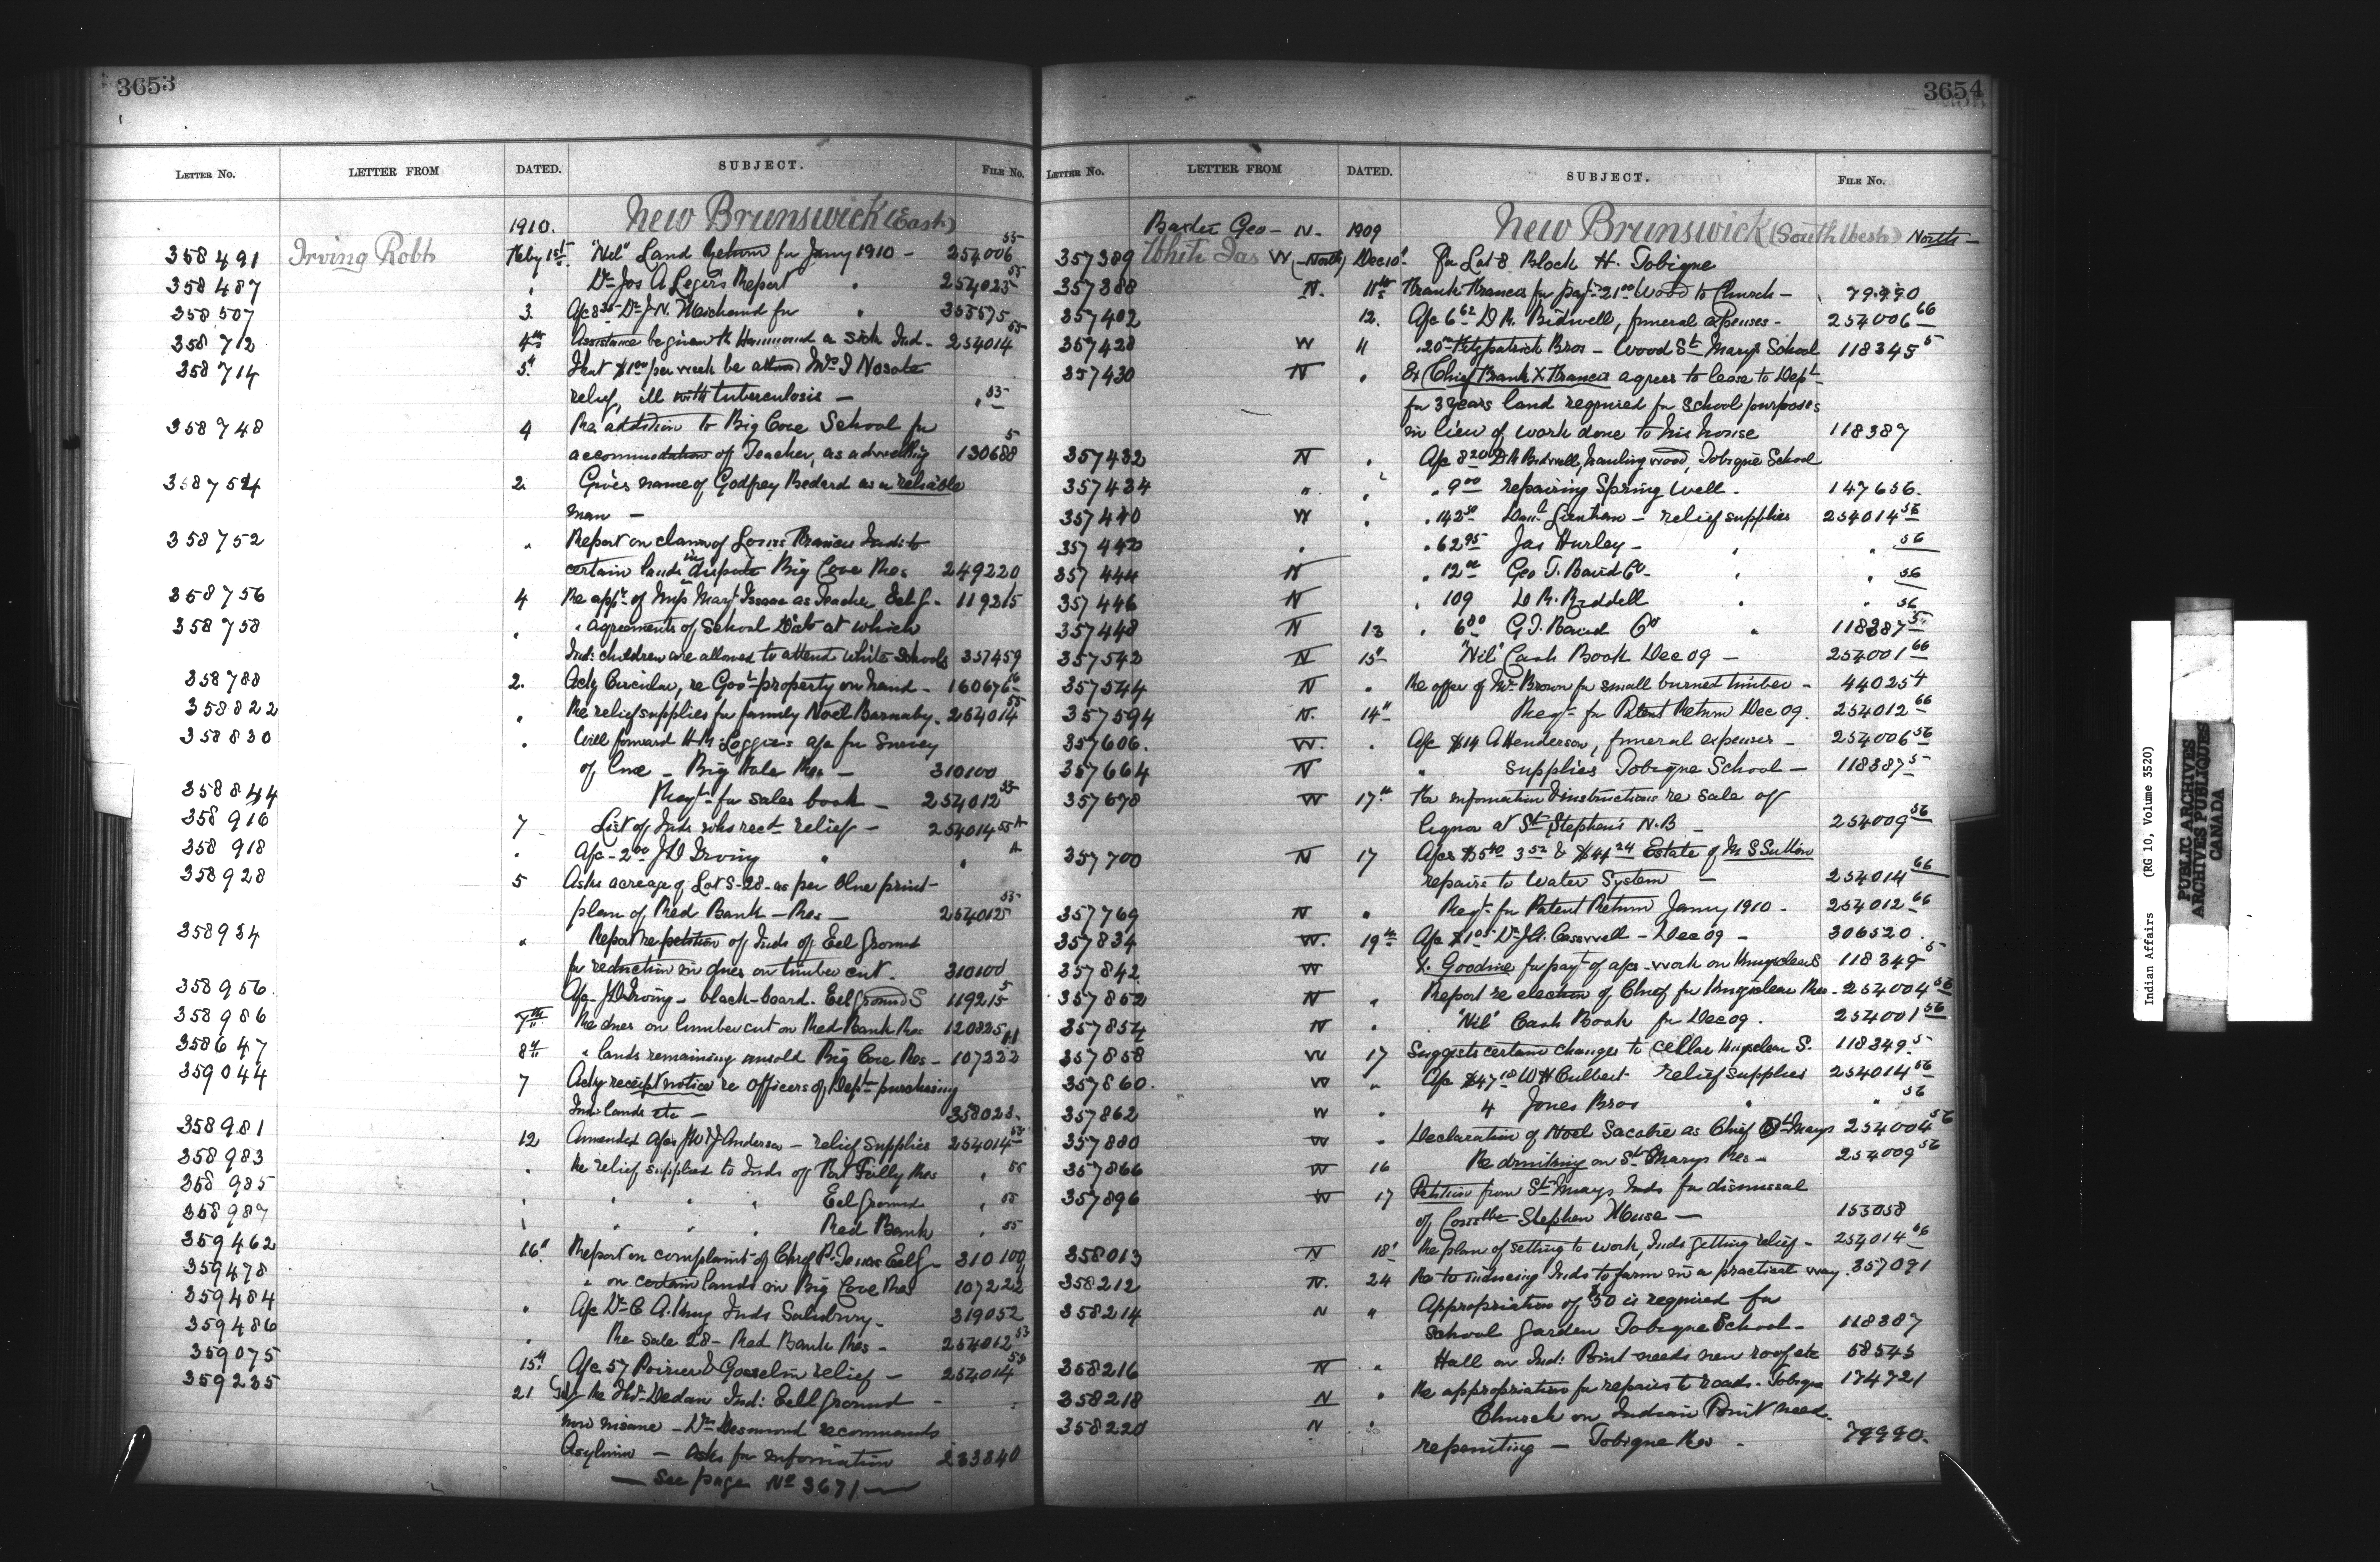 3653
LETTER No. LETTER FROM DATED. SUBJECT. FILE No.
1910. New Brunswick (East)
358491 Irving Robt Feby 1st "Nil" Land Return for Jany 1910 - 254006 55
358487 " Dr Jos A Legers Report " 254025 55
358507 3. a/c 8 Dr J. N. for "
358712 4th Assistance be given Hammond a sick Ind - 254014 55
358714 5th That $1.00 per week be Mrs I Nocote
relief, ill with tuberculosis - " 55
358748 4 Re addition to Big Cove School for
accommodation of Teacher, as advertising 130688 5
358754 2. Gives name of Godfrey Bedard as a reliable
man -
358752 " Report on claim of Louis Francis Ind: to
certain lands in dispute Big Cove Res 249220
358756 4 Re appt of Miss Mary Isaac as Teacher Eel G. 119215
358758 " " agreements of School Dists at which
Ind: children are allowed to attend White Schools 357459
358788 2. Ackg Circular, re Govt property on hand - 160676
358822 " Re relief supplies for family Noel Barnaby. 254014 55
358830 " Will forward H. M. Loggie's a/c for Survey
of line - Big Hole Res - 310100
358844 Reqt for sales book - 254012 55
358916 7 List of Inds who recd relief - 254014 55 A
358918 " a/c - 2.00 J D Irving " " A
358928 5 Asks acreage of Lot S-28 - as per blue print -
plan of Red Bank - Res - 254012 55
358934 " Report re petition of Inds of Eel Ground
for reduction in dues on timber cut. 310100
358956. a/c - J D Irving - black-board. Eel Ground S 119215 5
358986 7th Re dues on lumber cut on Red Bank Res 120825
358647 8th " lands remaining unsold Big Cove Res - 107222
359044 7 Ackg receipt notice re Officers of Dept purchasing
Ind: lands etc - 358023.
358981 12 Amended a/cs J W & J Anderson - relief supplies 254014 55
358983 " Re relief supplied to Inds of Fort Folly Res " 55
358985 " " " " Eel Ground " 55
358987 " " " " Red Bank " 55
359462 16th Report on complaint of Chief P. Julian Eel G - 310100
359478 " on certain lands in Big Cove Res 107222
359484 " a/c Dr C A. King Inds Salisbury - 319052
359486 " Re Sale 28 - Red Bank Res - 254012 55
359075 15th a/c 57 Poirier & Gosselin relief - 254014 55
359235 21. Re Thos Dedam Ind: Eel Ground -
now insane - Dr Desmond recommends
Asylum - Asks for information 233840
- See page No 3671 -
3654
LETTER No. LETTER FROM DATED. SUBJECT. FILE No.
Baxter Geo - N - 1909 New Brunswick (South West) North -
357389 White Jas W (-North) Dec 10th For Lot 8 Block H. Tobique
357388 N. 11th Frank Francis for payt 21.00 Wood to Church - 79990
357402 12. a/c 6.62 D R. Bidwell, funeral expenses - 254006 66
357428 W 11 " 20 Fitzpatrick Bros - Wood St Marys School 118345 5
357430 N " Ex Chief Frank X Francis agrees to lease to Dept
for 3 years land required for school purposes
in lieu of work done to his house 118387
357432 N " a/c 8.20 D R Bidwell, hauling wood, Tobique School
357434 " " " 9.00 repairing Spring Well. 147656.
357440 W " " 142.50 Danl Lenihan - relief supplies 254014 56
357442 " " 62.95 Jas Hurley - " " 56
357444 N " 12.00 Geo T. Baird Co - " 56
357446 N " 109 D R. Biddell " " 56
357448 N 13 " 6.80 G T. Baird Co " 118387 5
357542 N 15th "Nil" Cash Book Dec 09 - 254001 66
357544 N " Re offer of Mr Brown for small burned timber - 44025 4
357594 N. 14th Reqt for Patent Return Dec 09. 254012 66
357606. W. " a/c $14 A Henderson, funeral expenses - 254006 56
357664 N " supplies Tobique School - 118387 5
357678 W 17th Re information & instructions re sale of
liquor at St Stephens N.B - 254009 56
357700 N 17 a/cs $5.40 3.52 & $44.24 Estate of M S Sutton
repairs to Water System - 254014 66
357769 N " Reqt for Patent Return Jany 1910 - 254012 66
357834 W. 19th a/c Dr J A. Casswell - Dec 09 - 306520.
357842 W X. Goodine for payt of a/cs - work on Kingsclear S 118349 5
357852 N " Report re election of Chief for Kingsclear Res - 254004 56
357854 N " "Nil" Cash Book for Dec 09. 254001 56
357858 W 17 Suggests certain changes to Cellar Kingsclear S. 118349. 5
357860. W " a/c $47.18 W H Culbert relief supplies 254014 56
357862 W " 4 Jones Bros " " 56
357880 W " Declaration of Noel Sacobie as Chief St Marys 254004 56
357866 W 16 Re drinking on St Marys Res - 254009 56
357896 W 17 Petition from St Marys Inds for dismissal
of Constble Stephen Muise - 153058
358013 N 18th Re plan of setting to work, Inds getting relief - 254014 66
358212 N. 24 Re to inducing Inds to farm in a practical way. 357091
358214 N " Appropriation of $50 is required for
school garden Tobique School - 118387
358216 N " Hall on Ind: Point needs new roof etc 58543
358218 N " Re appropriation for repairs to roads - Tobique 174721
358220 N " Church on Indian Point need.
repainting - Tobique Res - 79990.
Indian Affairs (RG 10, Volume 3520)
PUBLIC ARCHIVES
ARCHIVES PUBLIQUES
CANADA